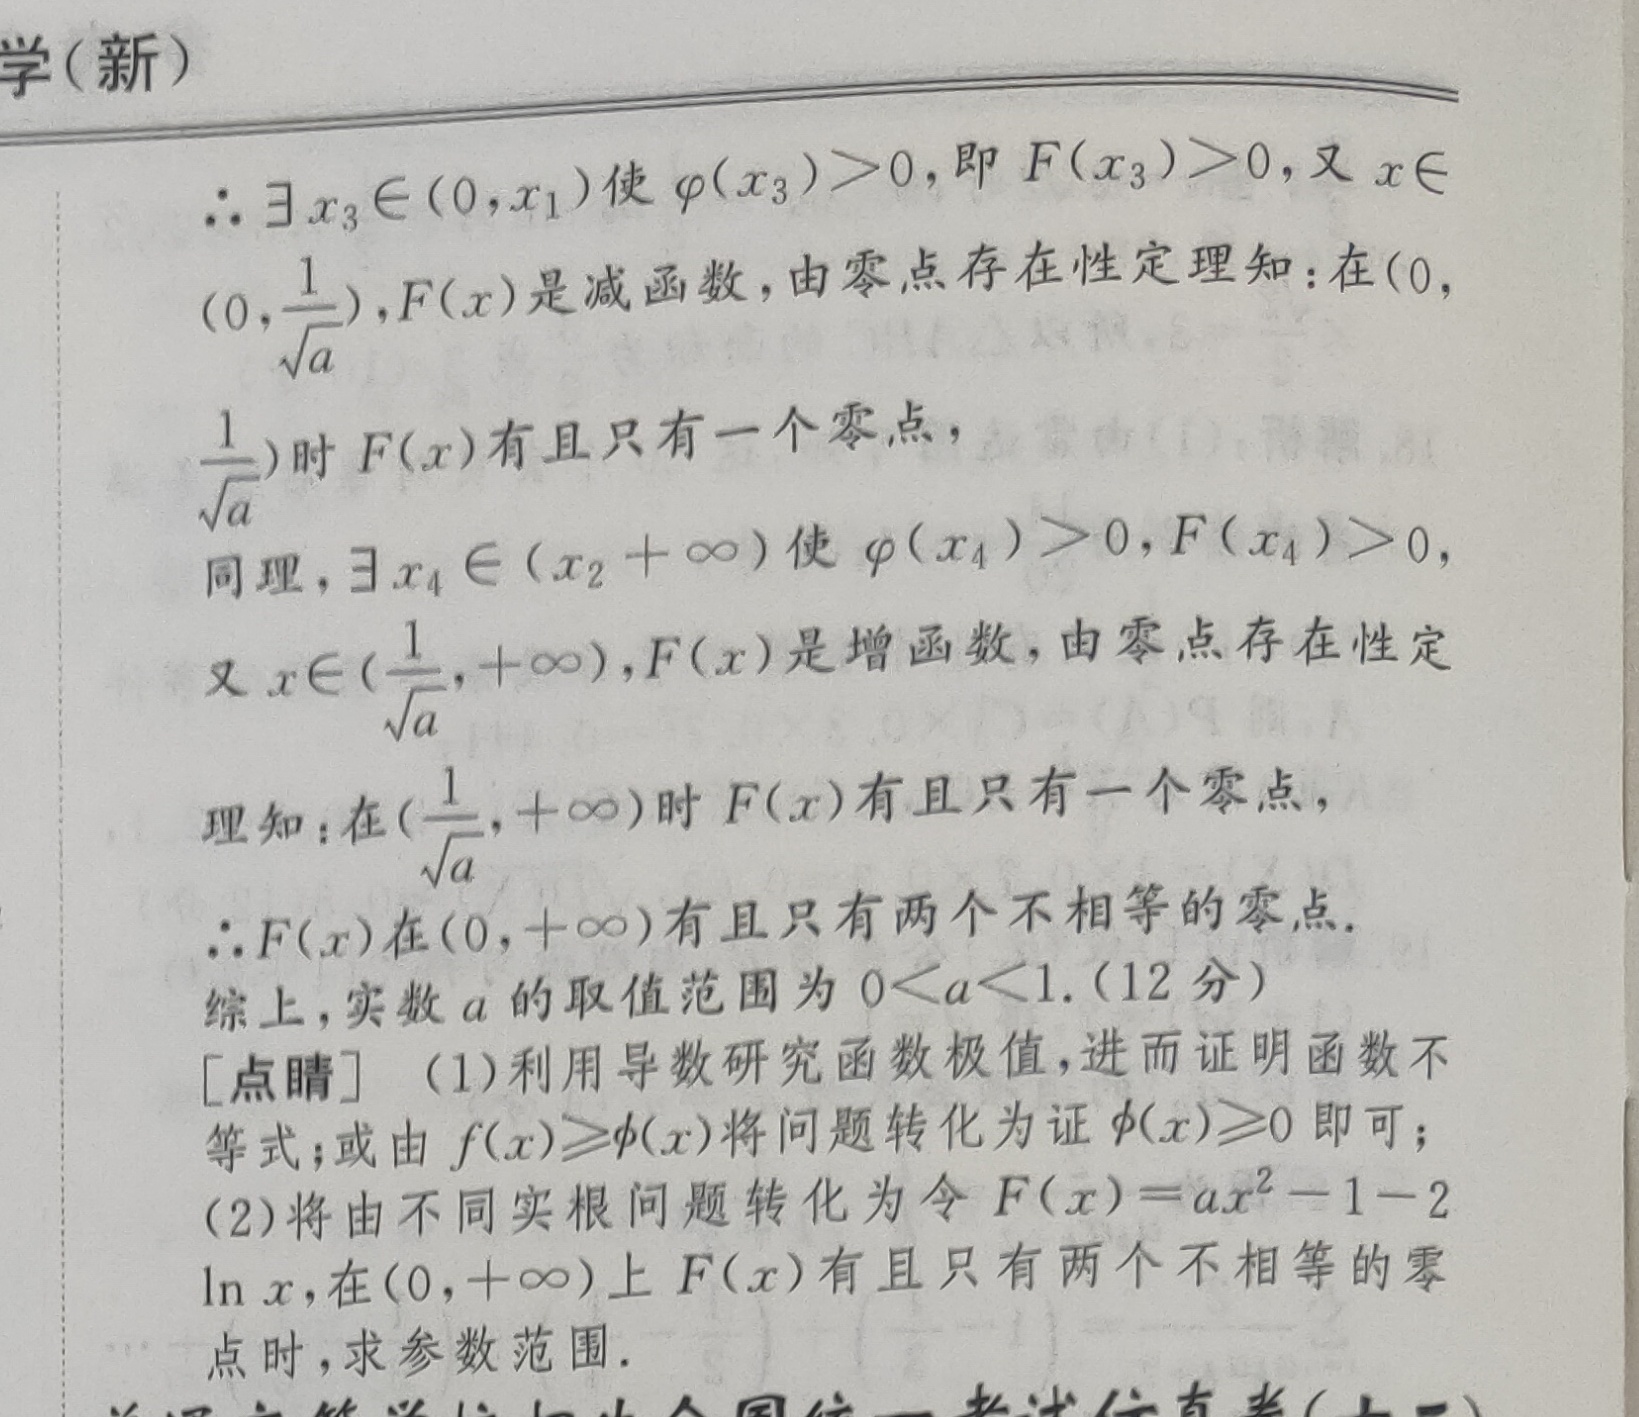 学(新)
∴∃x₃∈(0,x₁)使 φ(x₃)>0,即 F(x₃)>0,又 x∈
(0,1/√a),F(x)是减函数,由零点存在性定理知:在(0,
1/√a)时 F(x)有且只有一个零点,
同理,∃x₄∈(x₂+∞)使 φ(x₄)>0,F(x₄)>0,
又 x∈(1/√a,+∞),F(x)是增函数,由零点存在性定
理知:在(1/√a,+∞)时 F(x)有且只有一个零点,
∴F(x)在(0,+∞)有且只有两个不相等的零点.
综上,实数 a 的取值范围为 0<a<1.(12 分)
[点睛] (1)利用导数研究函数极值,进而证明函数不
等式;或由 f(x)≥ϕ(x)将问题转化为证 ϕ(x)≥0 即可;
(2)将由不同实根问题转化为令 F(x)=ax²-1-2
ln x,在(0,+∞)上 F(x)有且只有两个不相等的零
点时,求参数范围.